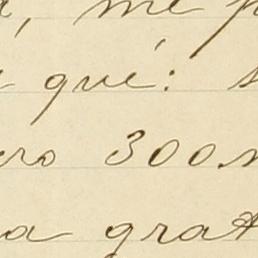 , me p
qué:
ro 300
a grat